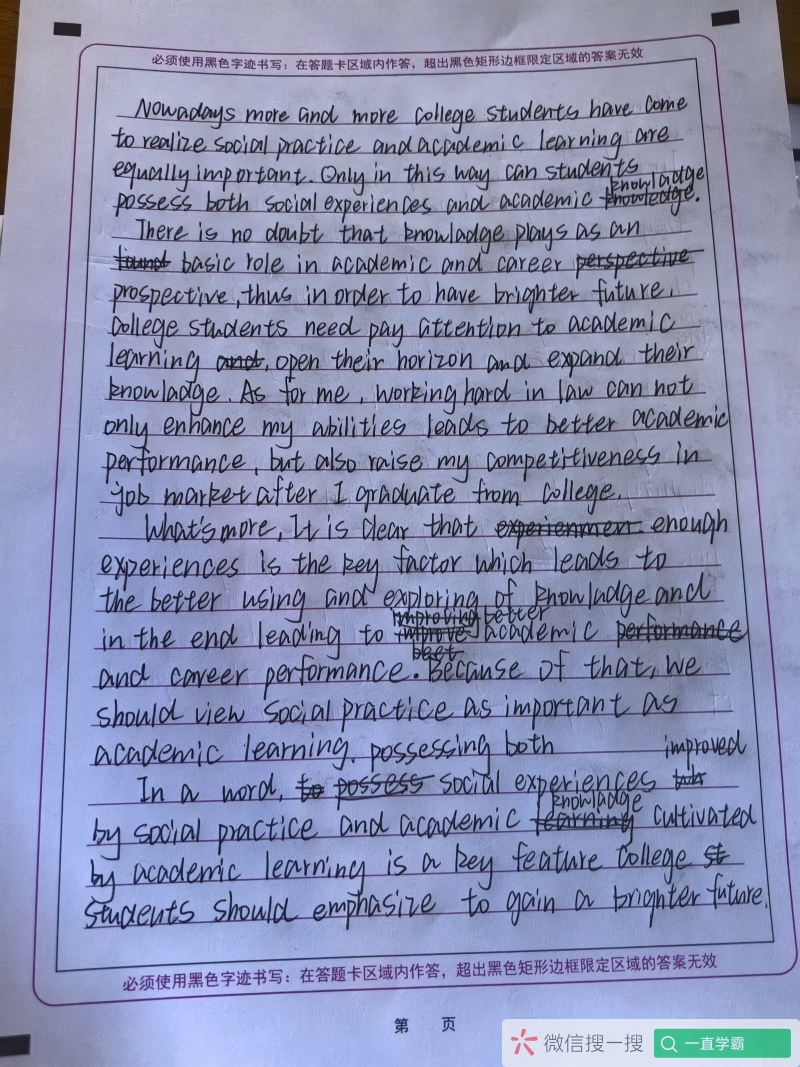 必须使用黑色字迹书写：在答题卡区域内作答，超出黑色矩形边框限定区域的答案无效
Nowadays more and more college students have come
to realize social practice and academic learning are
equally important. Only in this way can students
possess both social experiences and academic knowladge.
There is no doubt that knowladge plays as an
basic role in academic and career perspective
prospective, thus in order to have brighter future,
college students need pay attention to academic
learning and, open their horizon and expand their
knowladge. As for me, working hard in law can not
only enhance my abilities leads to better academic
performance, but also raise my competitiveness in
job market after I graduate from college.
What's more, It is clear that enough
experiences is the key factor which leads to
the better using and exploring of knowladge and
in the end leading to improving better academic performance
and career performance. Because of that, we
should view social practice as important as
academic learning.
In a word, to possess possessing both social experiences improved
by social practice and academic knowladge cultivated
by academic learning is a key feature college st
students should emphasize to gain a brighter future.
必须使用黑色字迹书写：在答题卡区域内作答，超出黑色矩形边框限定区域的答案无效
第 页
微信搜一搜
一直学霸